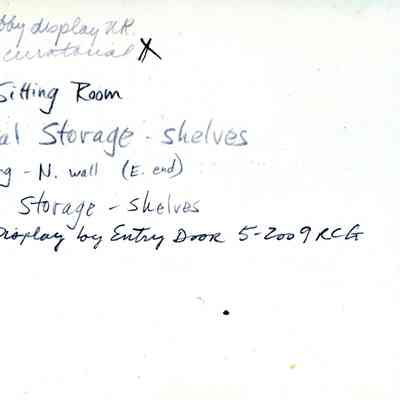 bby display
curatorial X
Sitting Room
al Storage - shelves
g - N. wall (E. end)
Storage - shelves
Display by Entry Door 5-2009 RCG